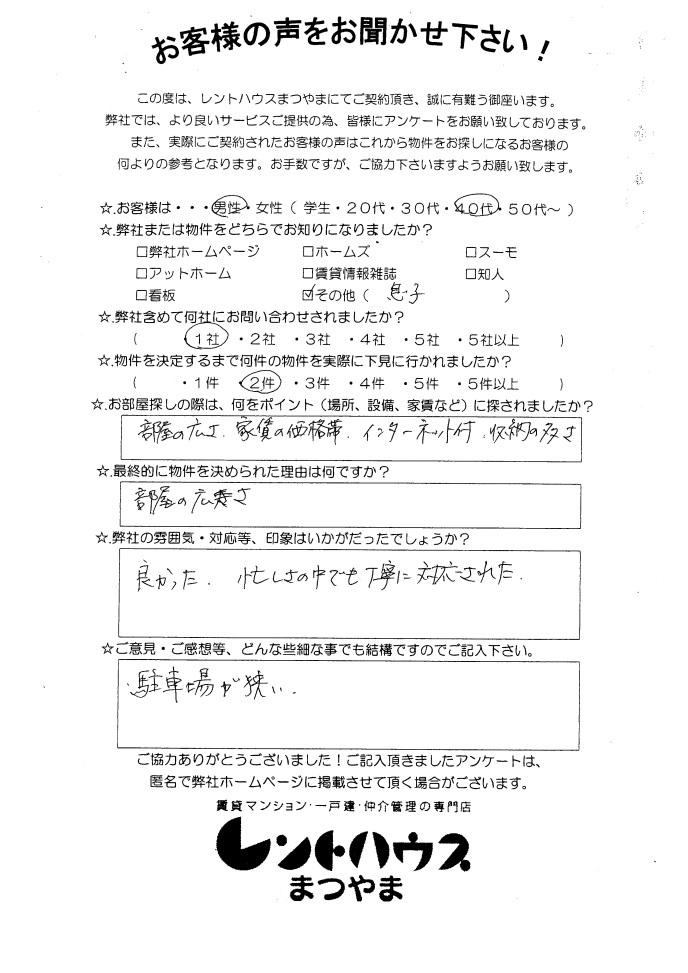 お客様の声をお聞かせ下さい！
この度は、レントハウスまつやまにてご契約頂き、誠に有難う御座います。
弊社では、より良いサービスご提供の為、皆様にアンケートをお願い致しております。
また、実際にご契約されたお客様の声はこれから物件をお探しになるお客様の
何よりの参考となります。お手数ですが、ご協力下さいますようお願い致します。
☆.お客様は・・・男性・女性（ 学生・２０代・３０代・４０代・５０代～ ）
☆.弊社または物件をどちらでお知りになりましたか？
□弊社ホームページ □ホームズ □スーモ
□アットホーム □賃貸情報雑誌 □知人
□看板 ☑その他（ 息子 ）
☆.弊社含めて何社にお問い合わせされましたか？
（ ・１社 ・２社 ・３社 ・４社 ・５社 ・５社以上 ）
☆.物件を決定するまで何件の物件を実際に下見に行かれましたか？
（ ・１件 ・２件 ・３件 ・４件 ・５件 ・５件以上 ）
☆.お部屋探しの際は、何をポイント（場所、設備、家賃など）に探されましたか？
部屋の広さ、家賃の価格帯、インターネット付、収納の多さ
☆.最終的に物件を決められた理由は何ですか？
部屋の広さ
☆.弊社の雰囲気・対応等、印象はいかがだったでしょうか？
良かった． 忙しさの中でも丁寧に対応された．
☆ご意見・ご感想等、どんな些細な事でも結構ですのでご記入下さい。
・駐車場が狭い．
ご協力ありがとうございました！ご記入頂きましたアンケートは、
匿名で弊社ホームページに掲載させて頂く場合がございます。
賃貸マンション・一戸建・仲介管理の専門店
レントハウス
まつやま